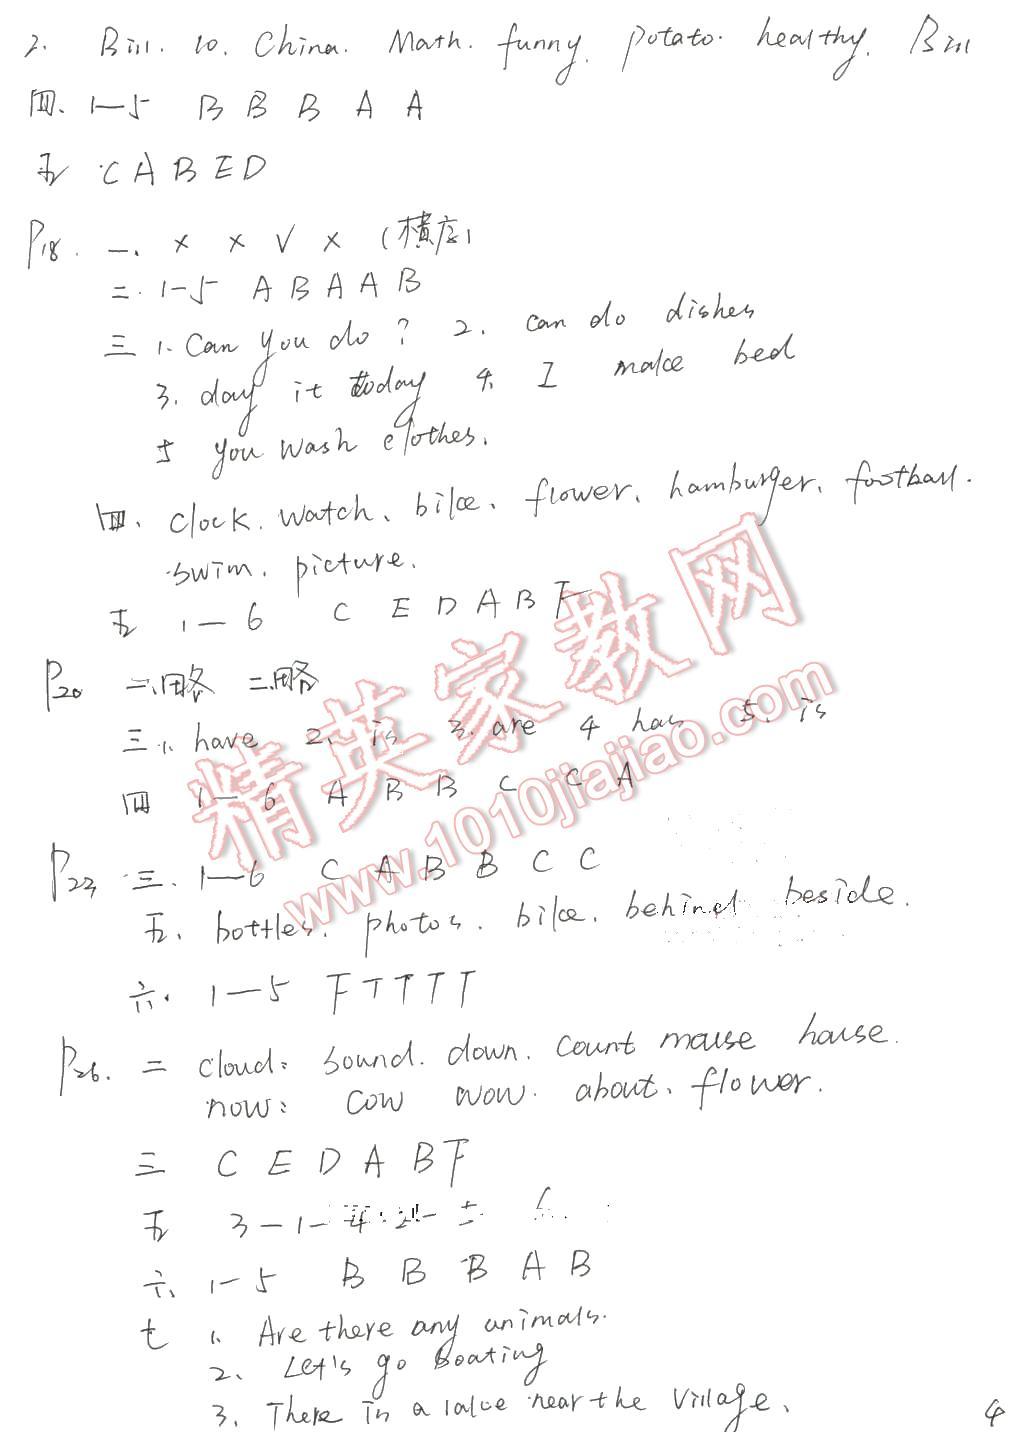 2. Bill. 10. China. Math. funny. potato. healthy. Bill
四、1—5 B B B A A
五 C A B E D
P18. 一、 × × √ × (横店)
二. 1-5 A B A A B
三 1. Can you do ? 2. can do dishes
3. day it today 4. I make bed
5 you wash clothes.
四、 clock. watch、 bike、 flower、 hamburger、 football.
swim. picture.
五 1—6 C E D A B F
P20 一、略 二.略
三 1. have 2. is 3. are 4 has 5. is
四 1—6 A B B C C A
P22 三. 1—6 C A B B C C
五. bottles. photos. bike. behind beside.
六. 1—5 F T T T T
P26. 二 cloud: sound. down. count mouse house.
now: cow wow. about. flower.
三 C E D A B F
五 3-1-4-2-5 6
六、1-5 B B B A B
七 1. Are there any animals.
2. Let's go boating
3. There is a lake near the village.
4
精英家教网
www.1010jiajiao.com